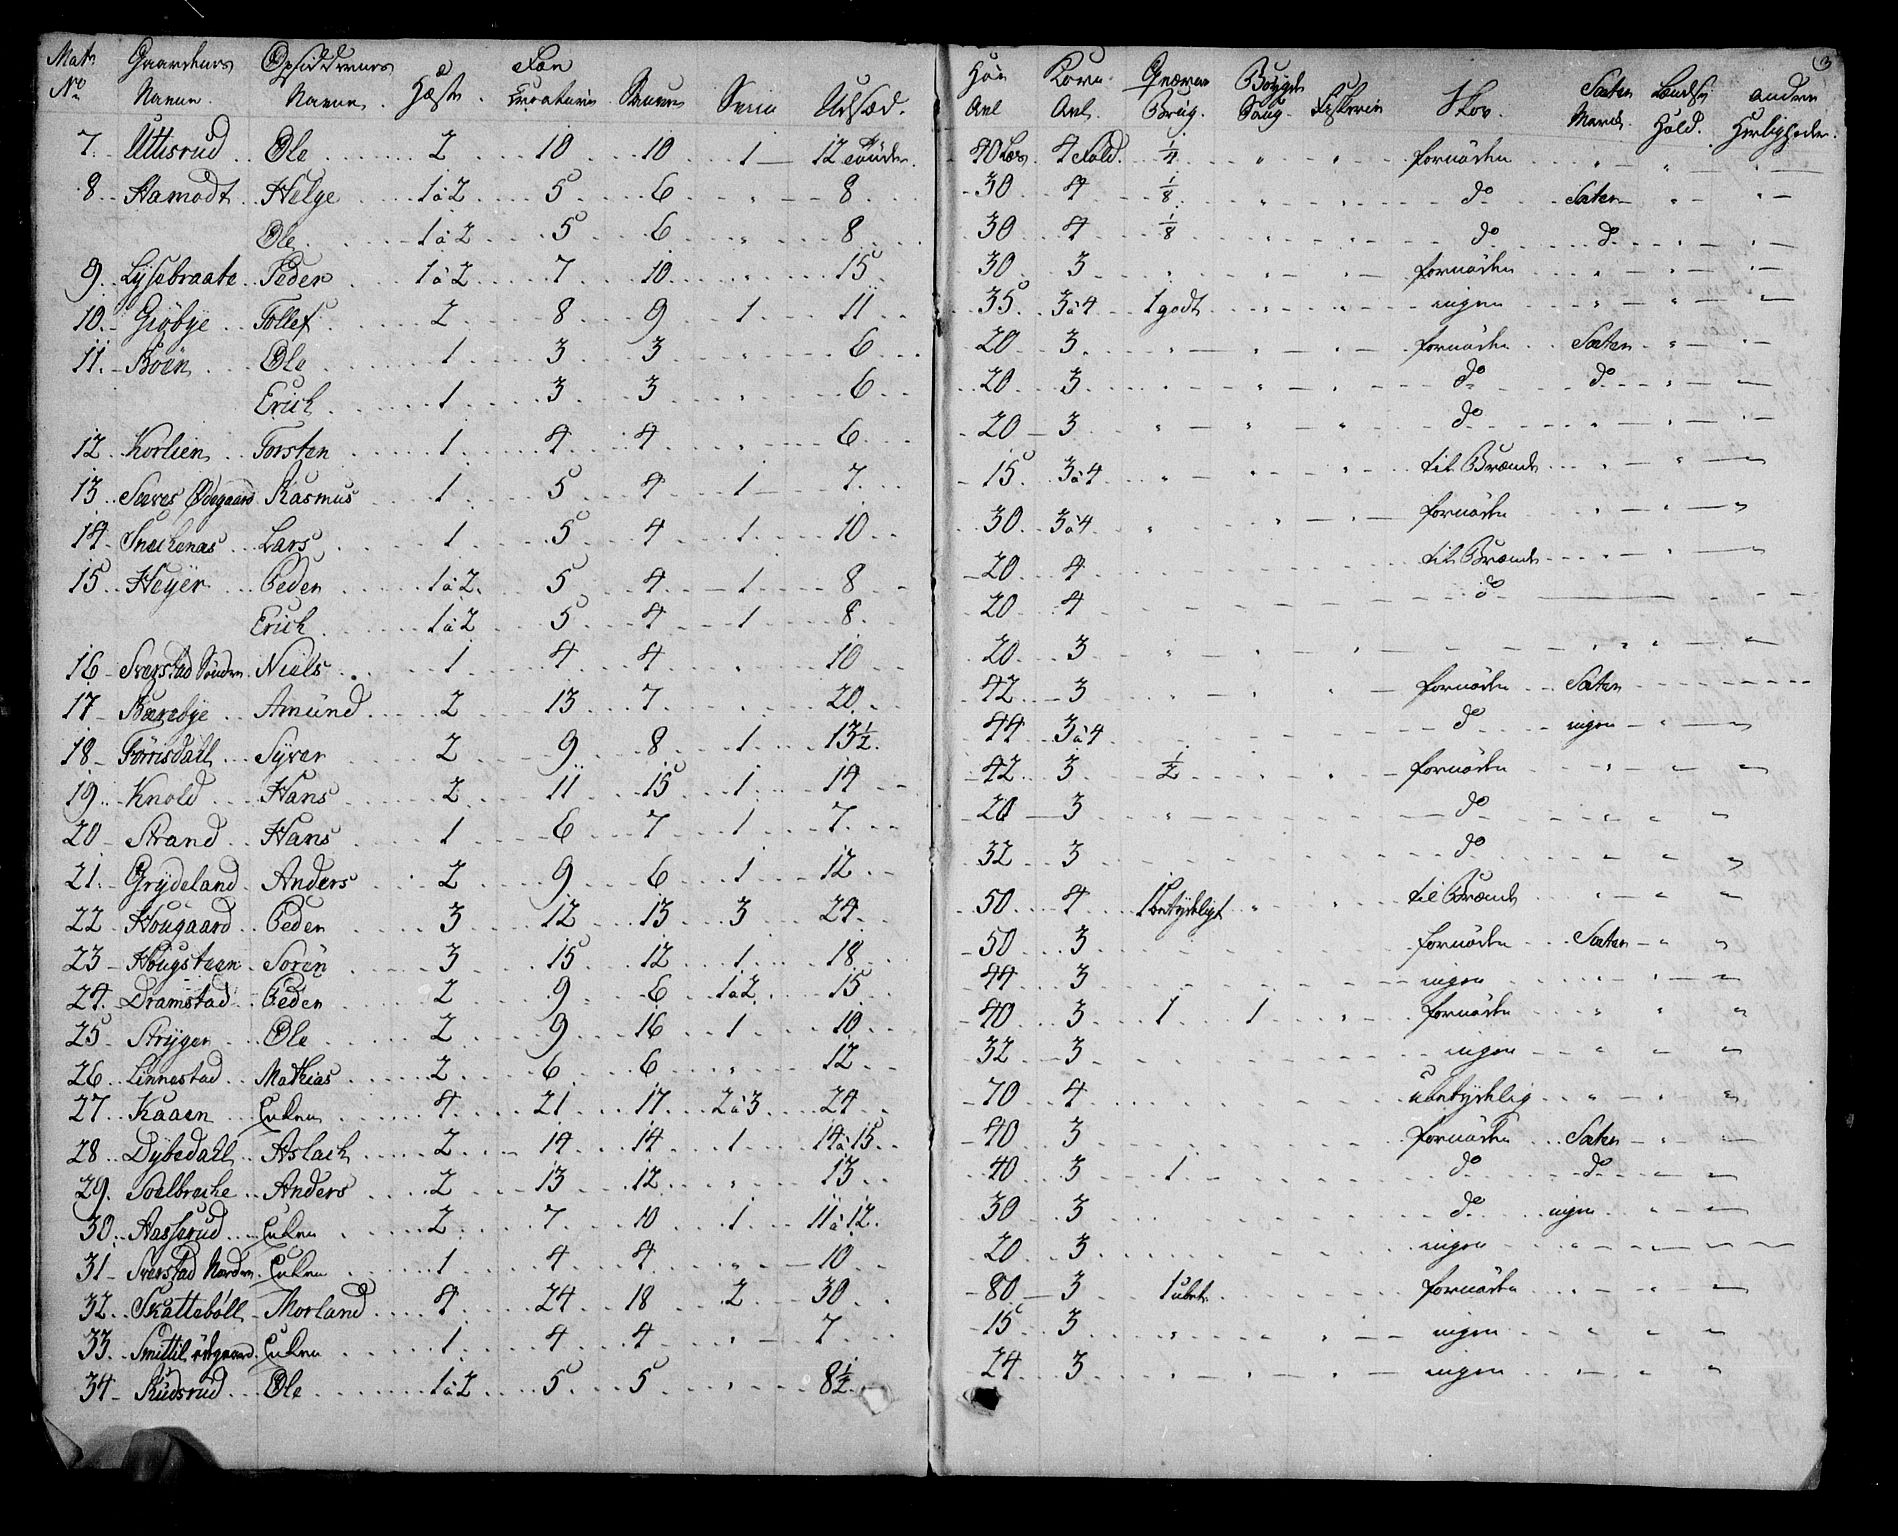 Mat: Gaardenes Opsiddernes Fæe Høe Korn Qværne Bøygde Sæter Lændsk andre 3
No Navne. Navne. Hæste. Creaturer Svin Udsæd. Avl Avl. Brug. Saug. Fiskerie Skov. March. Hold. Herligheder.
7. Uttisrud Ole 2 10 10 1 12 Tönder. 40 Læs 4 Fold. 1/4 " " fornöden " " "
8. Hamodt Helge 1 à 2 5 6 " 8 30 4 1/8 " " do Sæter " "
Ole 1 à 2 5 6 " 8 30 4 1/8 " " do do " "
9. Lÿsebraate Peder 1 à 2 7 10 " 15 30 3 " " " fornöden " " "
10. Giöbye Tollef 2 8 9 1 11 35 3 à 4 1 godt " " ingen " " "
11. Böen Ole 1 3 3 " 6 20 3 " " " fornöden Sæter " "
Erich 1 3 3 " 6 20 3 " " " do do " "
12 Korlien Torsten 1 4 4 " 6 20 3 " " " do " " "
13. Ödegaard Rasmus 1 5 4 1 7 15 3 à 4 " " " til Brænde " " "
14 Snechenæs Lars 1 5 4 1 10 30 3 à 4 " " " fornöden " " "
15 Heÿer Peder 1 à 2. 5 4 1 8 20 4 til Brænde " " "
Erich 1 à 2 5 4 1 8. 20 4 do
16 Sverstad Söndre Niels 1 4 4 " 10 20 3 " " "
17 Bærebÿe Amünd 2 13 7 " 20 42 3 " " " fornöden Sæter
18 Törrisdall Sÿver 2 9 8 1 13 1/2. 44 3 à 4 do ingen " "
19. Knold Hans 2 11 15 1 14 42 3 1/2 " " fornöden " " "
20 Strand Hans 1 6 7 1 7 20 3 " do " " "
21. Grÿdeland Anders 2 9 6 1 12 32 3 do " " "
22 Hougaard Peder 3 12 13 3 24 50 4 1 betÿdeligt " " til Brænde " " "
23 Hougstaen Sören 3 15 12 1 18 50 3 fornöden Sæter " "
24. Dramstad Peder 2 9 6 1 à 2 15 44 3 ingen " " "
25 Strÿgen Ole 2 9 16 1 10 40 3 1 1 " fornöden " " "
26 Linnestad Mathias 2 6 6 " 12 32 3 ingen " " "
27 Kaaen Enken 4 21 17 2 à 3 24 70 4 ubetÿdelig " " "
28 Dÿbedall Aslach 2 14 14 1 14 à 15 40 3 fornöden Sæter " "
29. Soelbrecke Anders 2 13 12 " 13 40 3 1 do do " "
30. Aasserud Enken 2 7 10 1 11 à 12. 30 3 do ingen " "
31 Sverstad Nordre Enken 1 4 4 " 10 20 3 ingen "
32 Skatteböll Morland 4 24 18 2 30 80 3 1 ubet. fornöden " " "
33. Smittil ödegaard Enken 1 4 4 " 7 15 3 " " " ingen " " "
34 Rudsrud Ole 1 à 2 5 5 " 8 1/2. 24 3 " " " ingen " " "